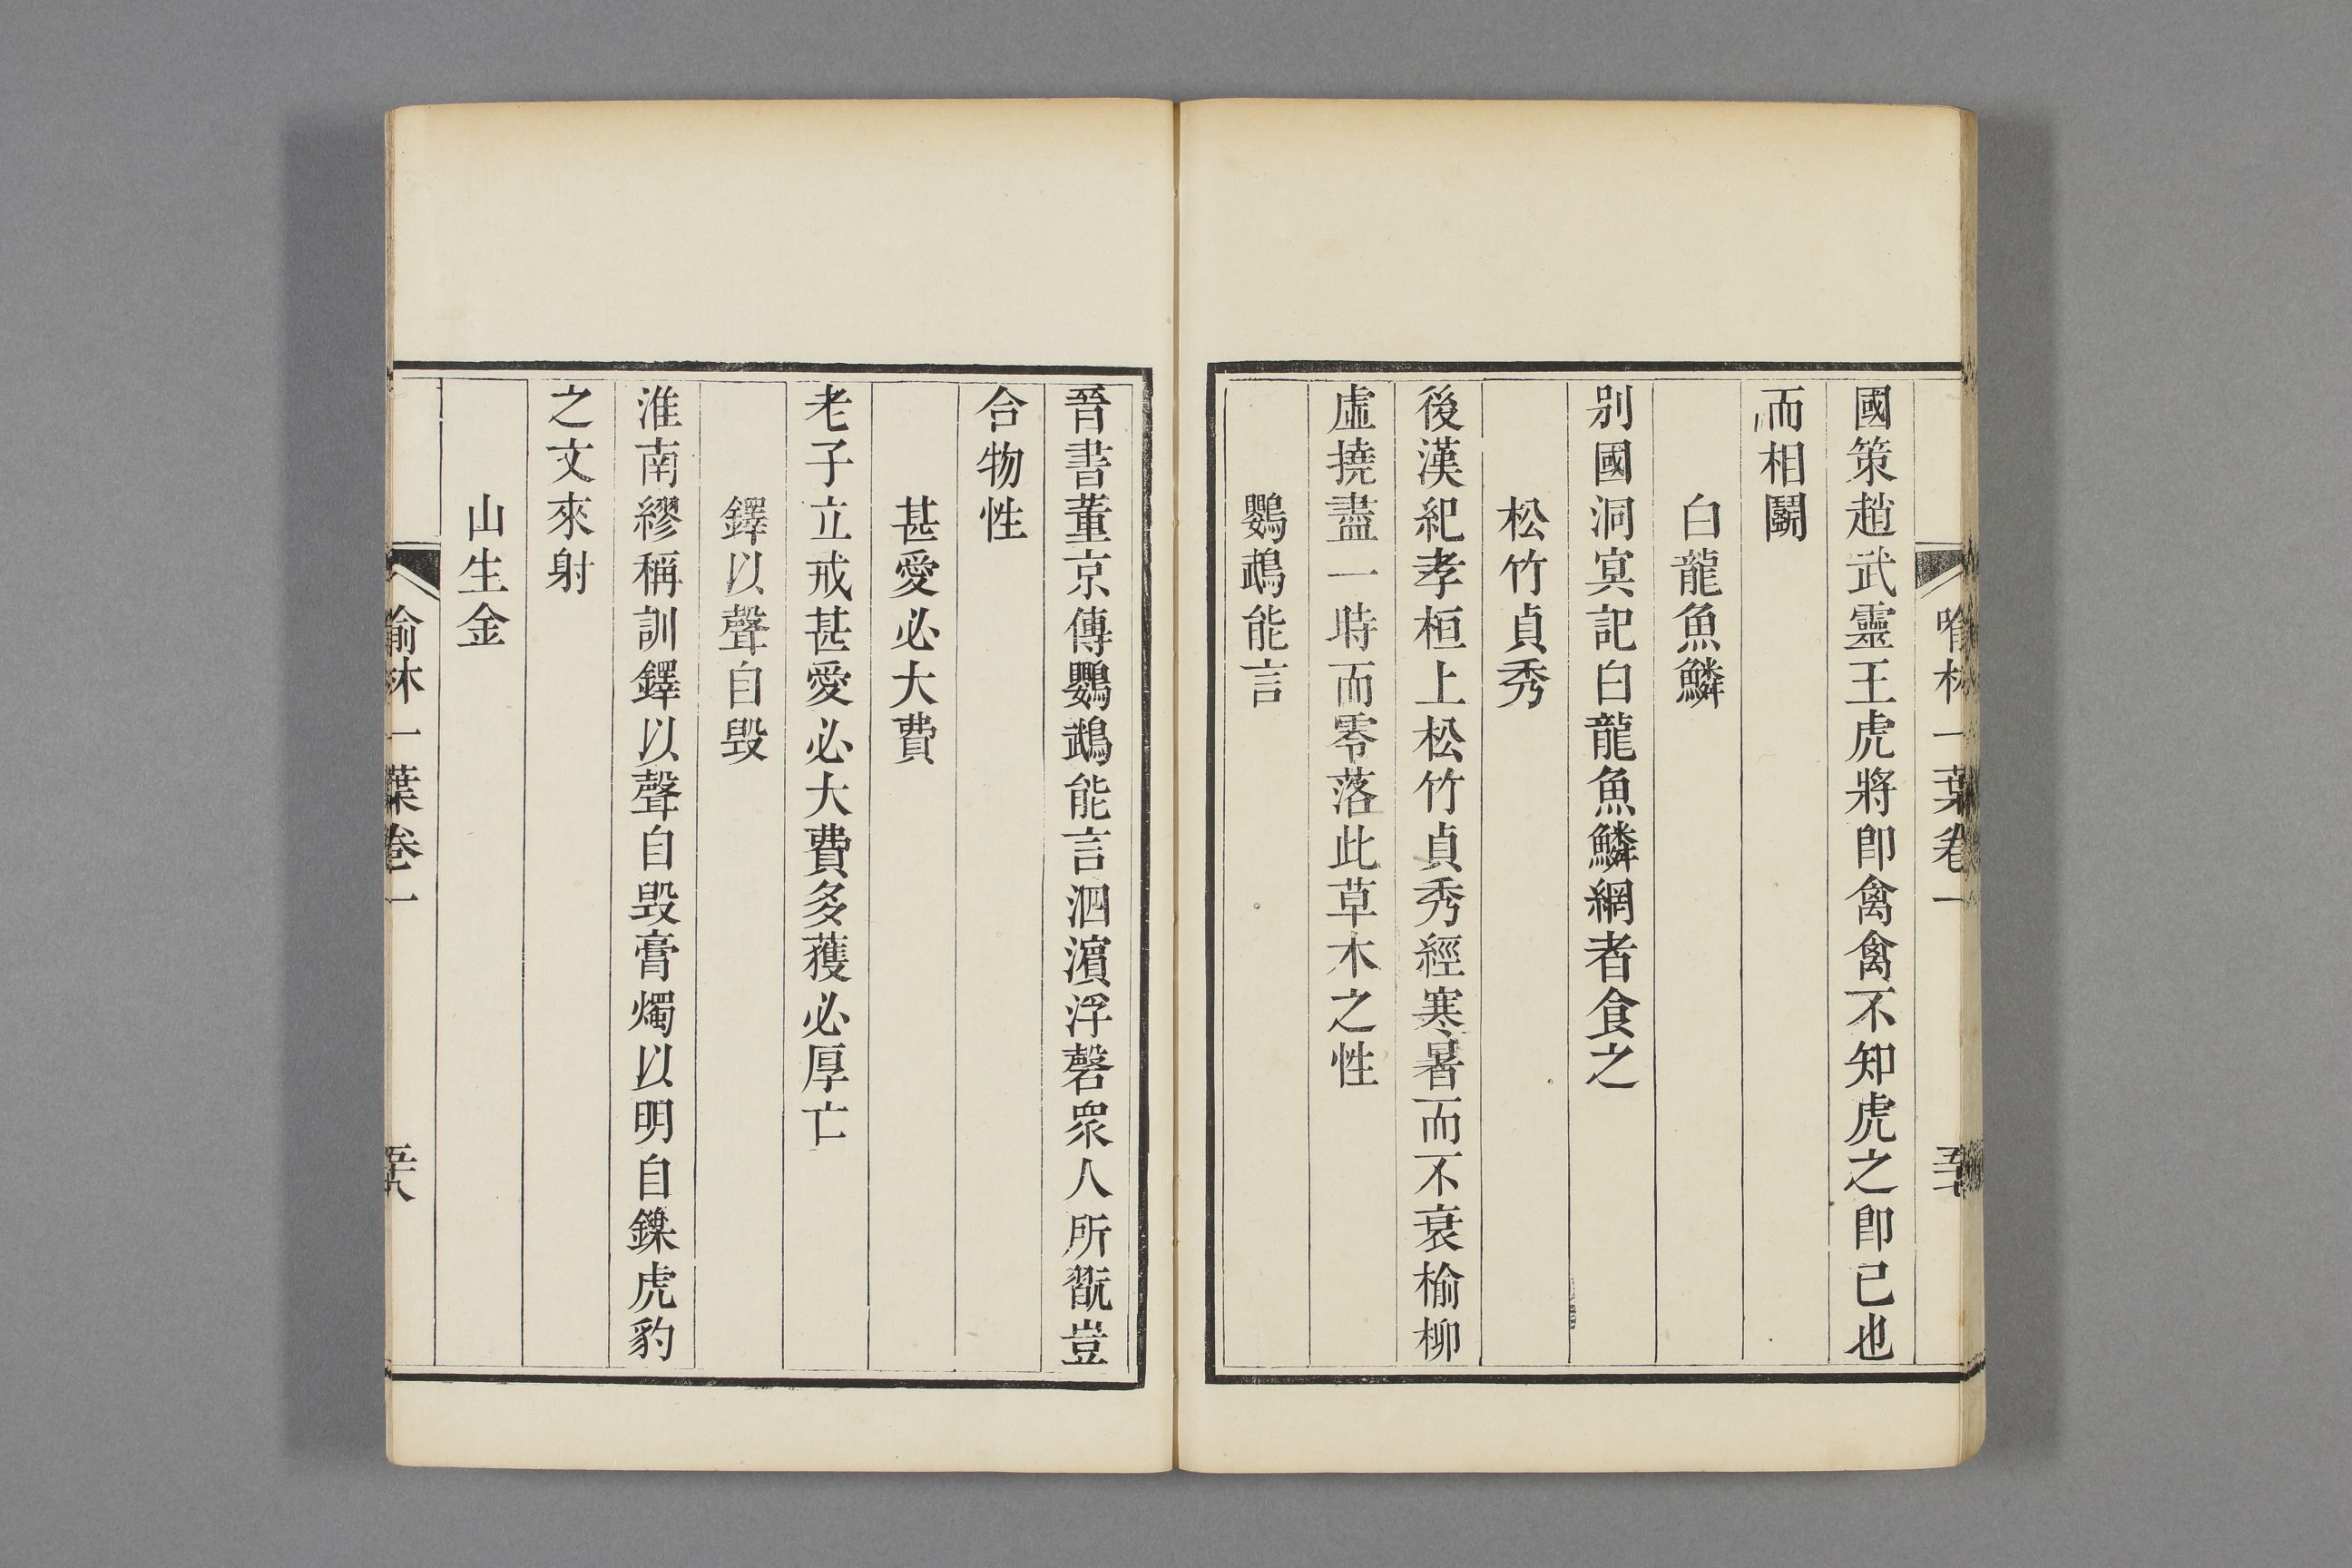 喻林一葉卷一
國策趙武靈王虎將卽禽禽不知虎之卽己也
而相鬬
白龍魚鱗
别國洞冥記白龍魚鱗網者食之
松竹貞秀
後漢紀孝桓上松竹貞秀經寒暑而不衰榆柳
虛撓盡一時而零落此草木之性
鸚鵡能言
晉書董京傳鸚鵡能言泗濵浮磬衆人所翫豈
合物性
甚愛必大費
老子立戒甚愛必大費多獲必厚亡
鐸以聲自毁
淮南繆稱訓鐸以聲自毁膏燭以明自鑠虎豹
之文來射
山生金
喻林一葉卷一
五十八